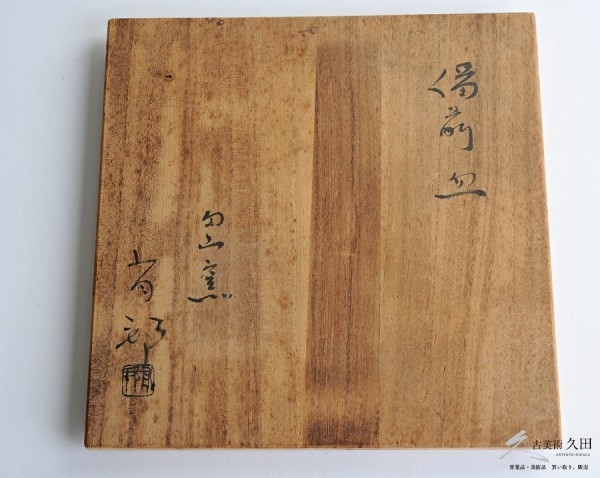 備前皿
勾山窯
古美術 久田
骨董品・美術品 買い取り、販売